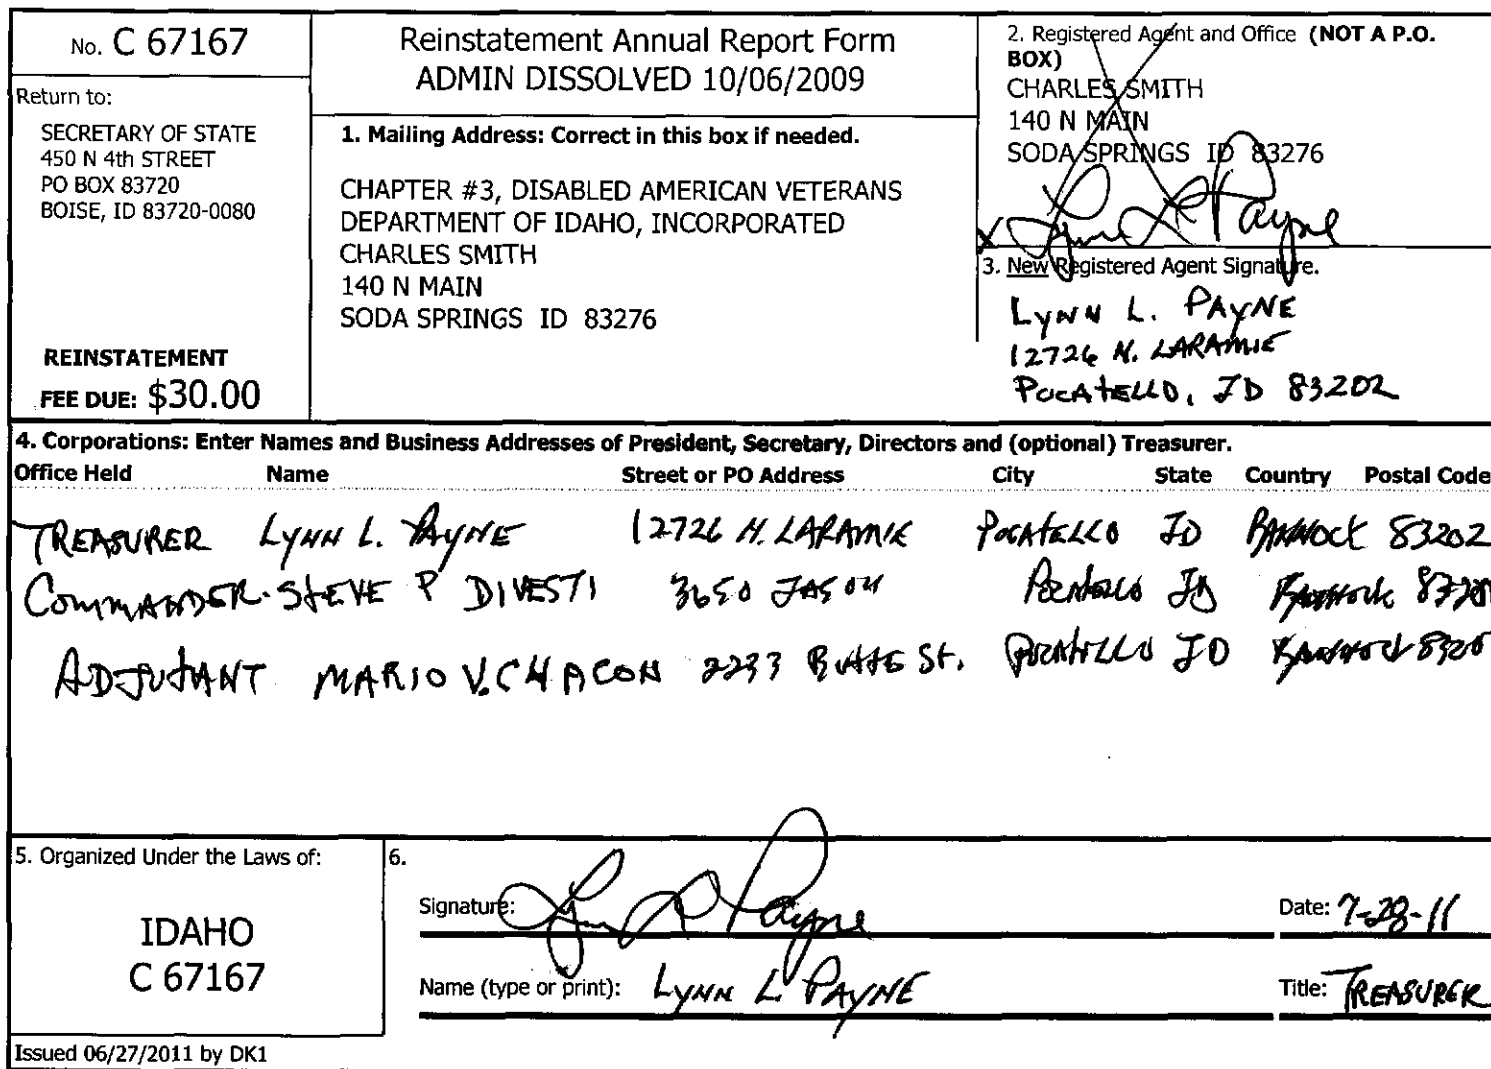 No. C 67167
Return to:
SECRETARY OF STATE
450 N 4th STREET
PO BOX 83720
BOISE, ID 83720-0080
REINSTATEMENT
FEE DUE: $30.00
Reinstatement Annual Report Form
ADMIN DISSOLVED 10/06/2009
1. Mailing Address: Correct in this box if needed.
CHAPTER #3, DISABLED AMERICAN VETERANS
DEPARTMENT OF IDAHO, INCORPORATED
CHARLES SMITH
140 N MAIN
SODA SPRINGS ID 83276
2. Registered Agent and Office (NOT A P.O.
BOX)
CHARLES SMITH
140 N MAIN
SODA SPRINGS ID 83276
x Lynn L Payne
3. New Registered Agent Signature.
LYNN L. PAYNE
12726 N. LARAMIE
POCATELLO, ID 83202
4. Corporations: Enter Names and Business Addresses of President, Secretary, Directors and (optional) Treasurer.
Office Held Name Street or PO Address City State Country Postal Code
TREASURER LYNN L. PAYNE 12726 N. LARAMIE POCATELLO ID BANNOCK 83202
COMMANDER. STEVE P DIVESTI 3650 JASON POCATELLO ID BANNOCK
ADJUTANT MARIO V. CHACON 2233 BUTTE ST. POCATELLO ID BANNOCK
5. Organized Under the Laws of:
IDAHO
C 67167
Issued 06/27/2011 by DK1
6.
Signature: Lynn L Payne
Date: 7-28-11
Name (type or print): LYNN L PAYNE
Title: TREASURER